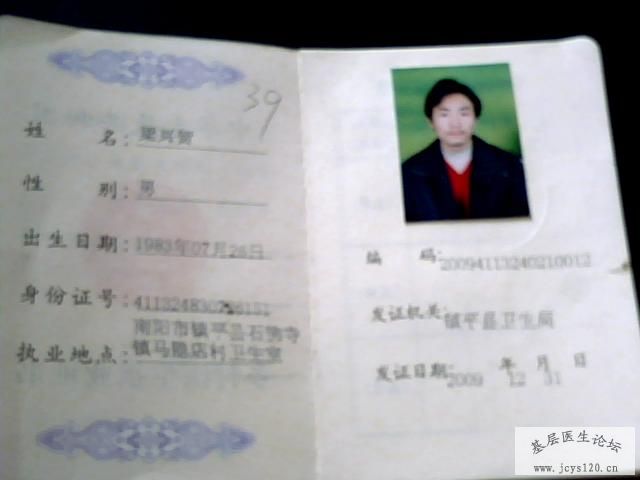 39
姓 名:
性 别: 男
出生日期: 1983年07月26日
身份证号:
执业地点: 南阳市镇平县石佛寺
镇马隐店村卫生室
编 码: 20094113240210012
发证机关: 镇平县卫生局
发证日期: 2009 年 12 月 31 日
基层医生论坛
www.jcys120.cn